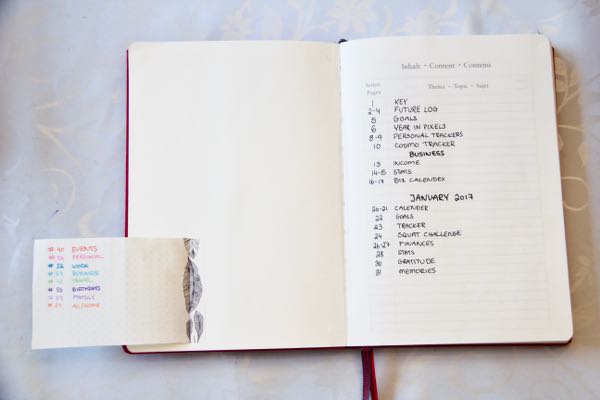 # 40 EVENTS
PERSONAL
# 32 WORK
BUSINESS
TRAVEL
# 55 BIRTHDAYS
FAMILY
Inhalt · Content · Contenu
Seiten Pages
Thema · Topic · Sujet
1 KEY
2-4 FUTURE LOG
5 GOALS
6 YEAR IN PIXELS
8-9 PERSONAL TRACKERS
10 COSMO TRACKER
BUSINESS
13 INCOME
14-15 STATS
16-17 BIZ CALENDRY
JANUARY 2017
20-21 CALENDER
22 GOALS
23 TRACKER
24 SQUAT CHALLENGE
26-27 FINANCES
28 STATS
30 GRATITUDE
31 MEMORIES